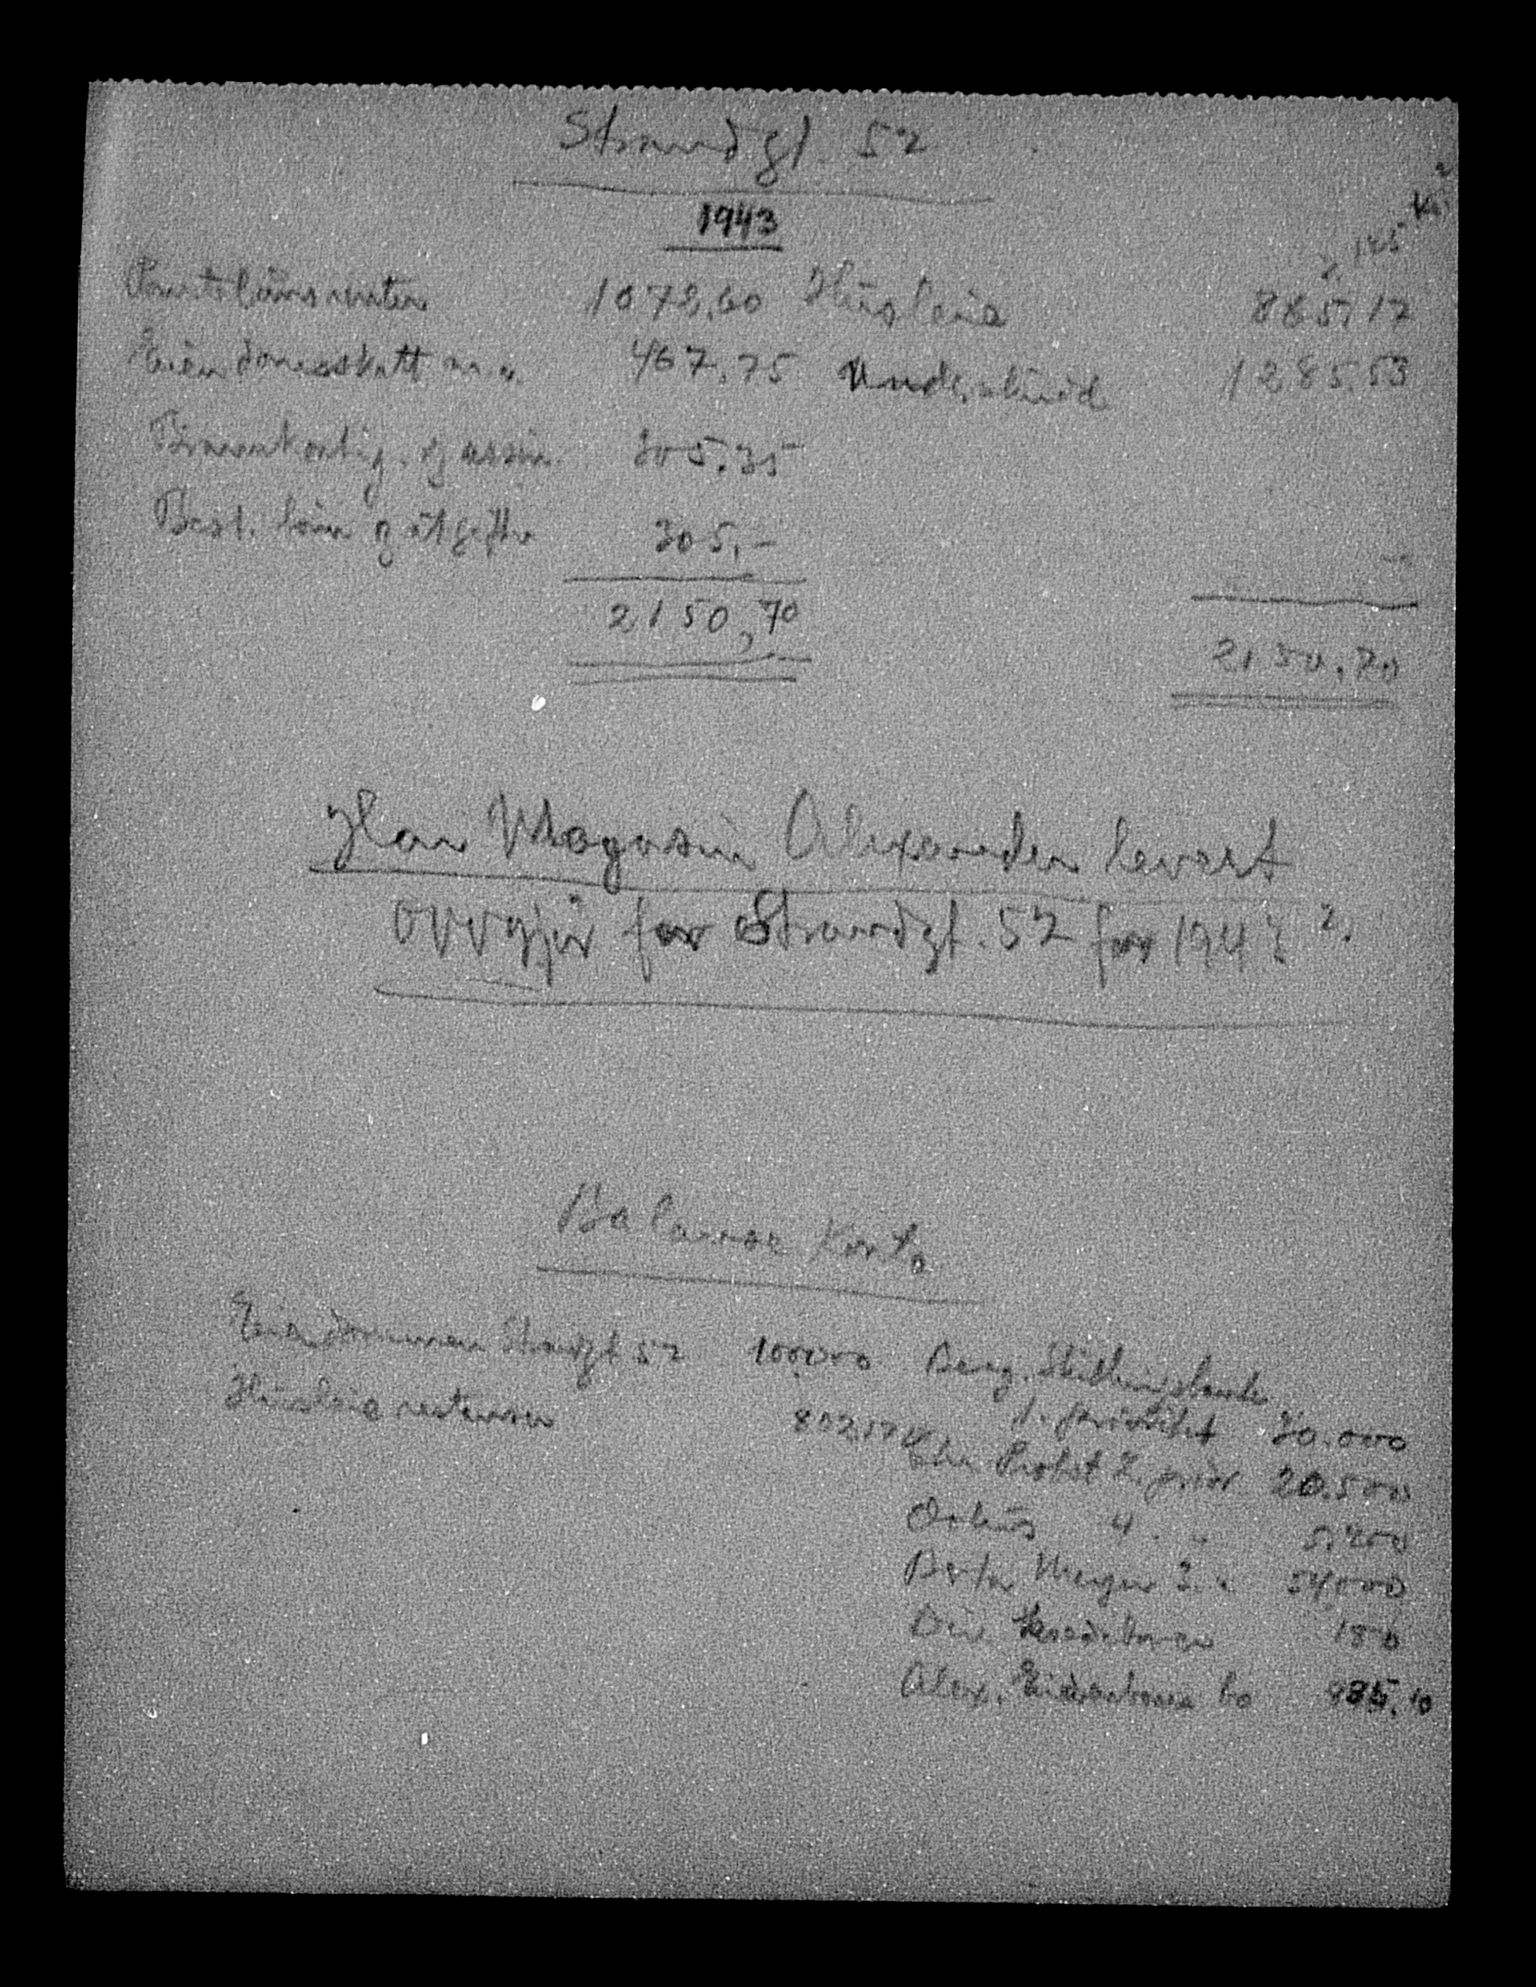 Strandgt. 52
1943
Pantelånsrenter 1072,60 Husleie 865,17
Eiendomsskatt m.v. 467,75 Underskudd 1285,53
Brannkonting. og assur. 305,35
Best. lønn og utgifter 305,-
2150,70 2150,70
Har Magasin Alexander levert
oppgjør for Strandgt. 52 for 1943?
Balanse Konto
Eiendommen Strandgt 52 100000 Berg. Skillingsbank
1. prioritet 20.000
Husleie restanser 802,17
Probst 2. prior 20.500
4. " 5,200
Meyer 3. " 54,000
Div. kreditorer 150
Alex. Eiendoms Co 985,10